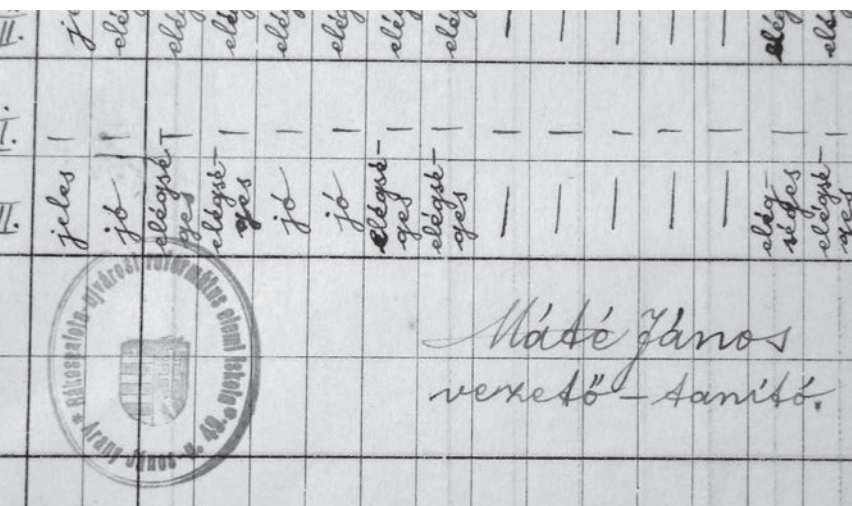 II.
I. — — — — — — — — — — — — — —
II. jeles jó elégsé-ges elégsé-ges jó jó elégsé-ges elégsé-ges — — — — — elég-séges elégsé-ges
Rákospalota-ujvárosi református elemi iskola
Arany János-u. 49.
Máté János
vezető-tanító.